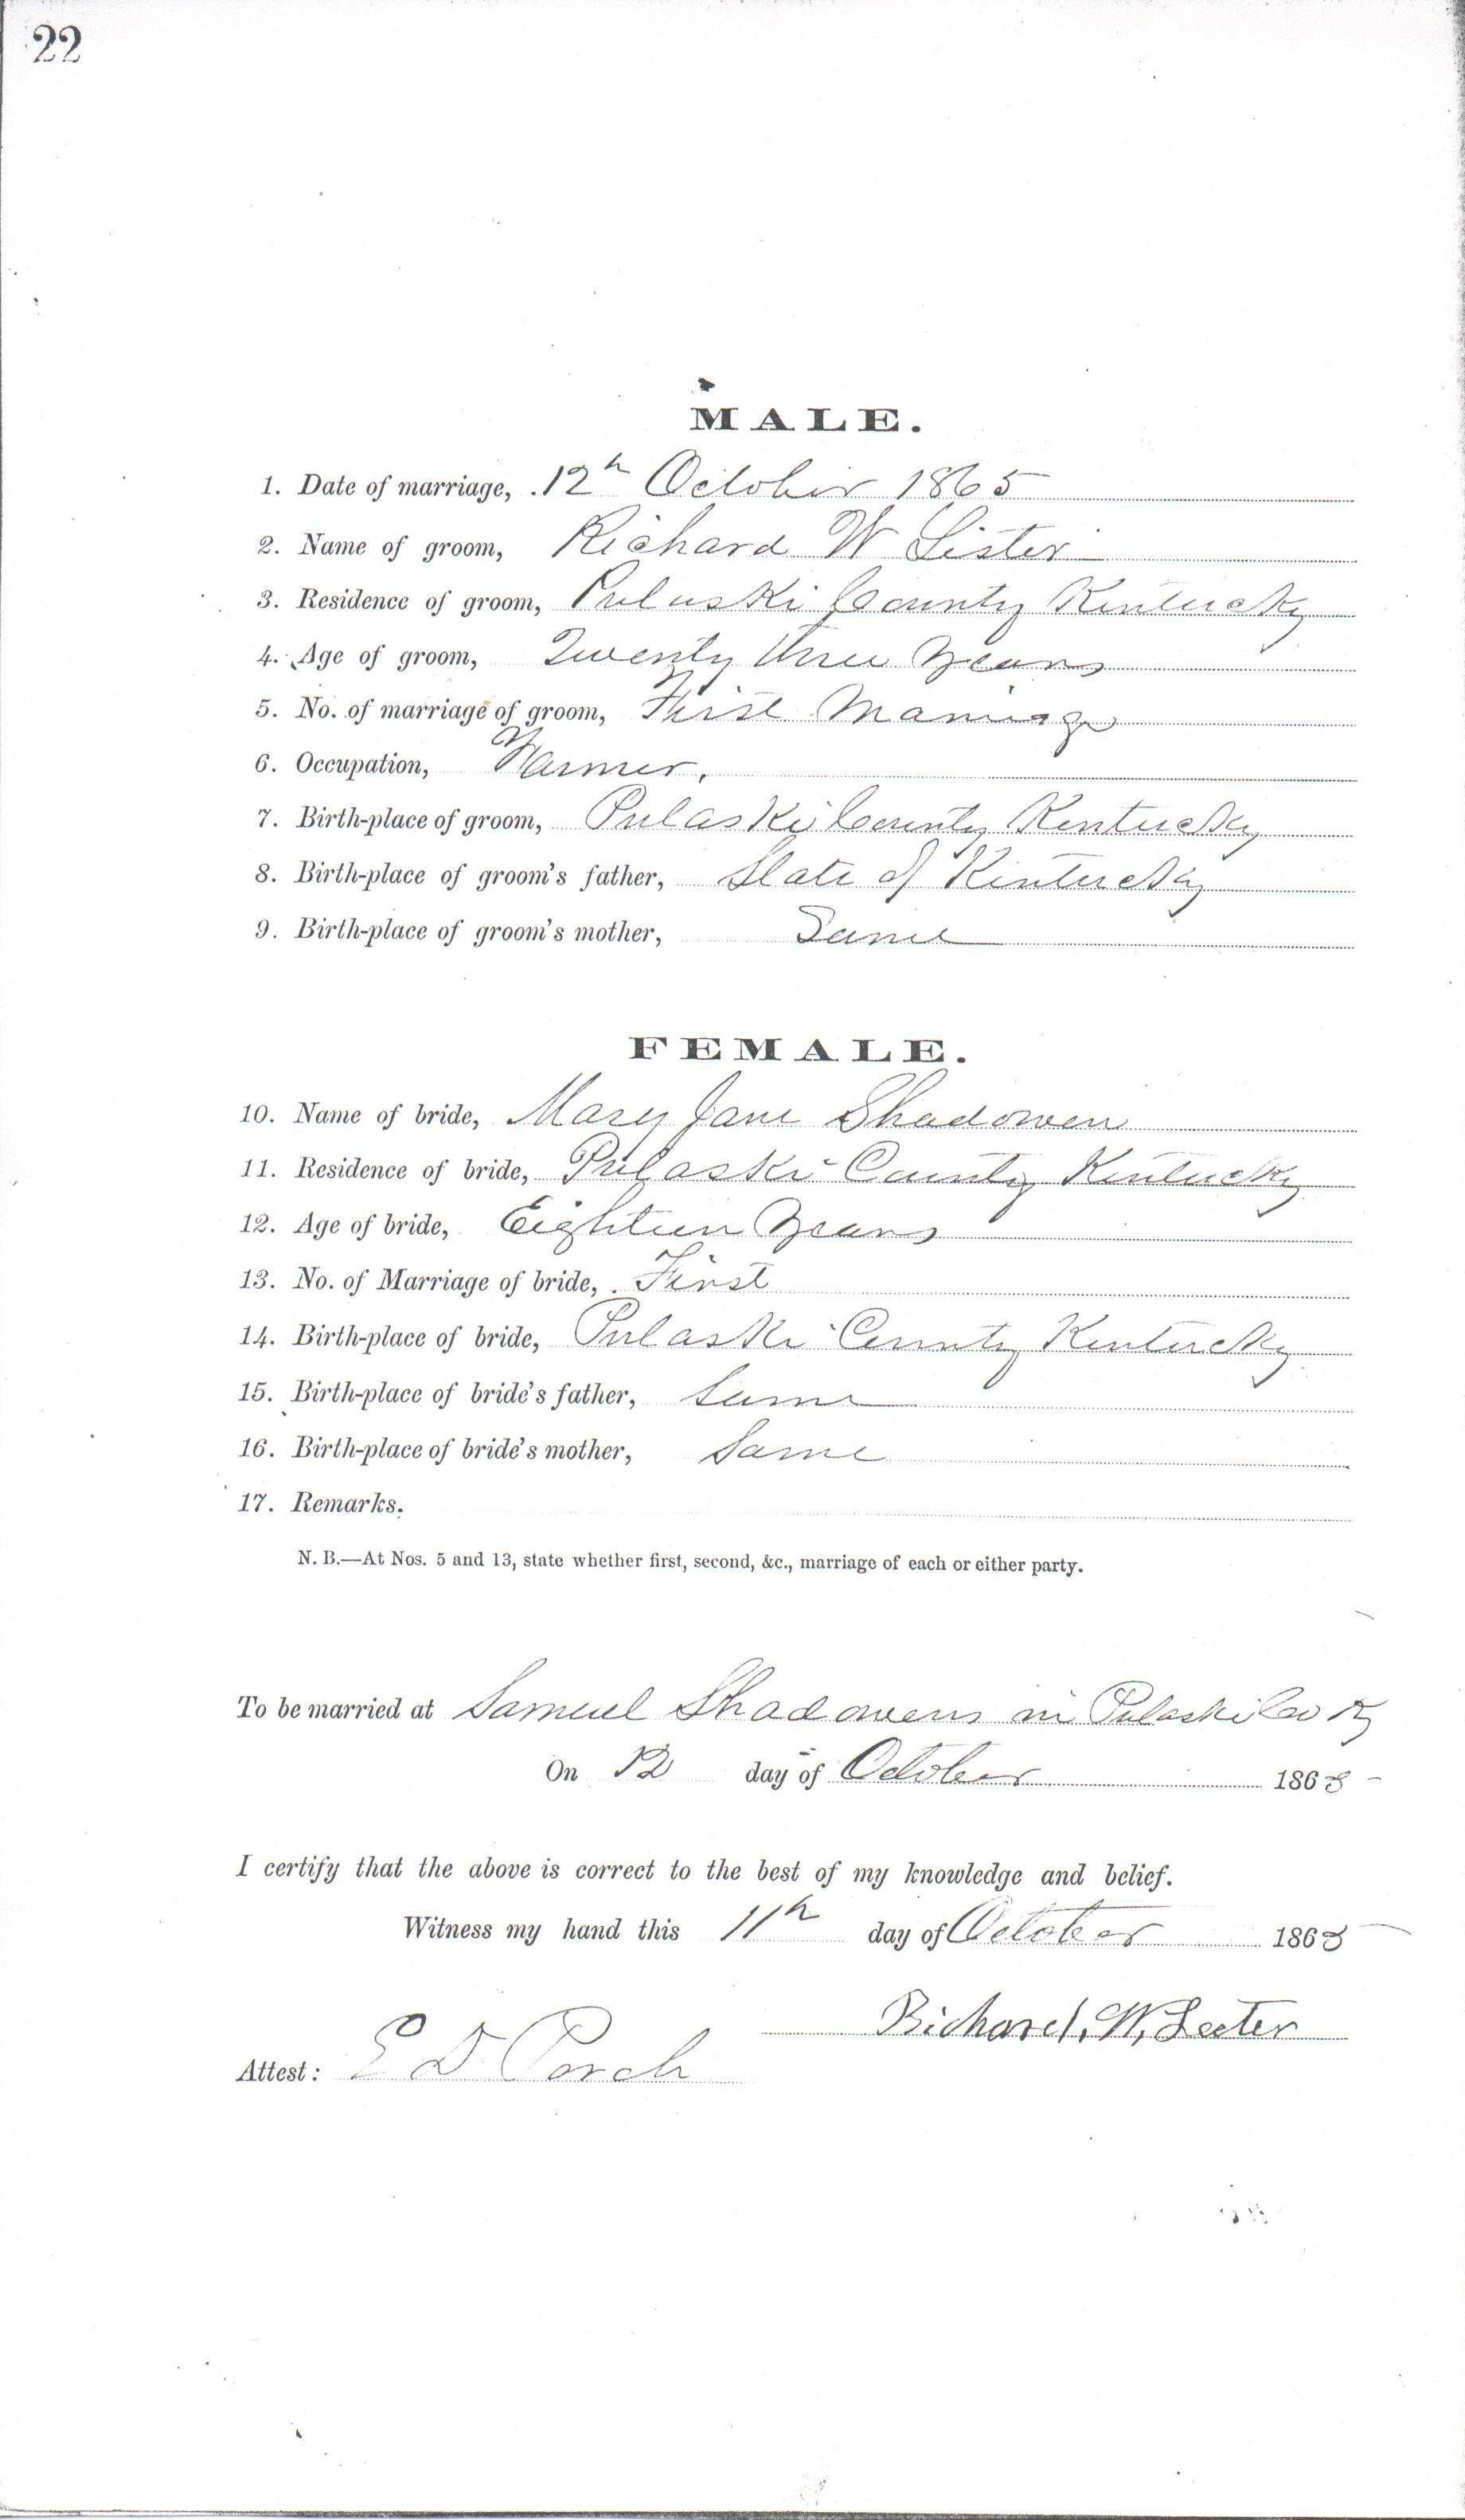 22
MALE.
1. Date of marriage, 12th October 1865
2. Name of groom, Richard W Lister
3. Residence of groom, Pulaski County Kentucky
4. Age of groom, Twenty three years
5. No. of marriage of groom, First Marriage
6. Occupation, Farmer.
7. Birth-place of groom, Pulaski County Kentucky
8. Birth-place of groom's father, State of Kentucky
9. Birth-place of groom's mother, Same
FEMALE.
10. Name of bride, Mary Jane Shadowen
11. Residence of bride, Pulaski County Kentucky
12. Age of bride, Eighteen years
13. No. of Marriage of bride, First
14. Birth-place of bride, Pulaski County Kentucky
15. Birth-place of bride's father, Same
16. Birth-place of bride's mother, Same
17. Remarks.
N. B.—At Nos. 5 and 13, state whether first, second, &c., marriage of each or either party.
To be married at Samuel Shadowens in Pulaski Co Ky
On 12 day of October 1865
I certify that the above is correct to the best of my knowledge and belief.
Witness my hand this 11th day of October 1865
Richard. W. Lester
Attest: E D Porch